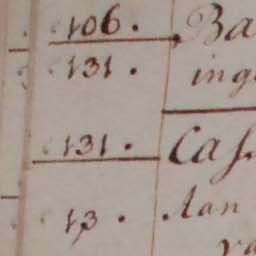 106. Ba
131. ing
131. Cas
13. tan